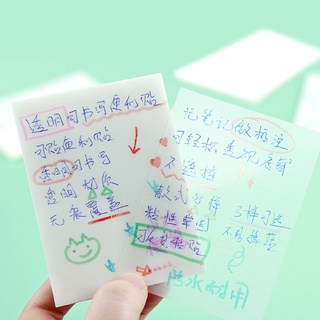 透明可书写便利贴
可贴便利贴
透明可书可
透明
无痕覆盖
记笔记做标注
可轻松
不遮挡
款式多样
3种可选
粘性牢固
不易掉落
可反复粘贴
防水耐用